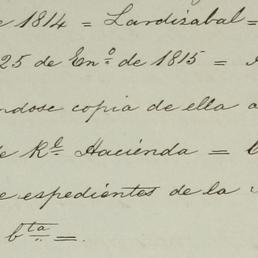 de 1814 = Lardizabal =
25 de En.º de 1815 =
ndose copia de ella a
de R.l Hacienda =
e espedientes de la
b.ta =.